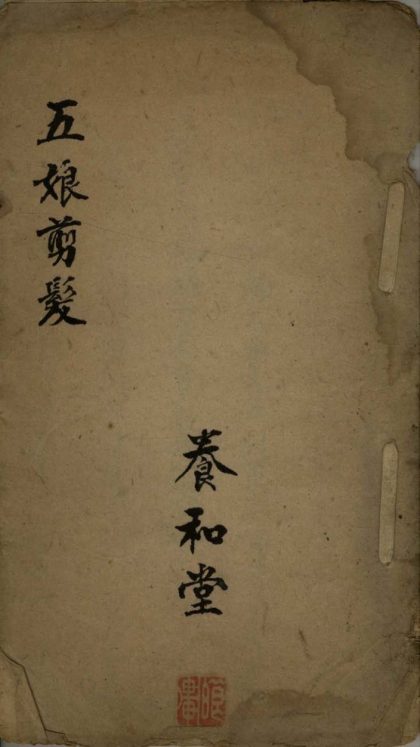 五娘剪髮
養和堂